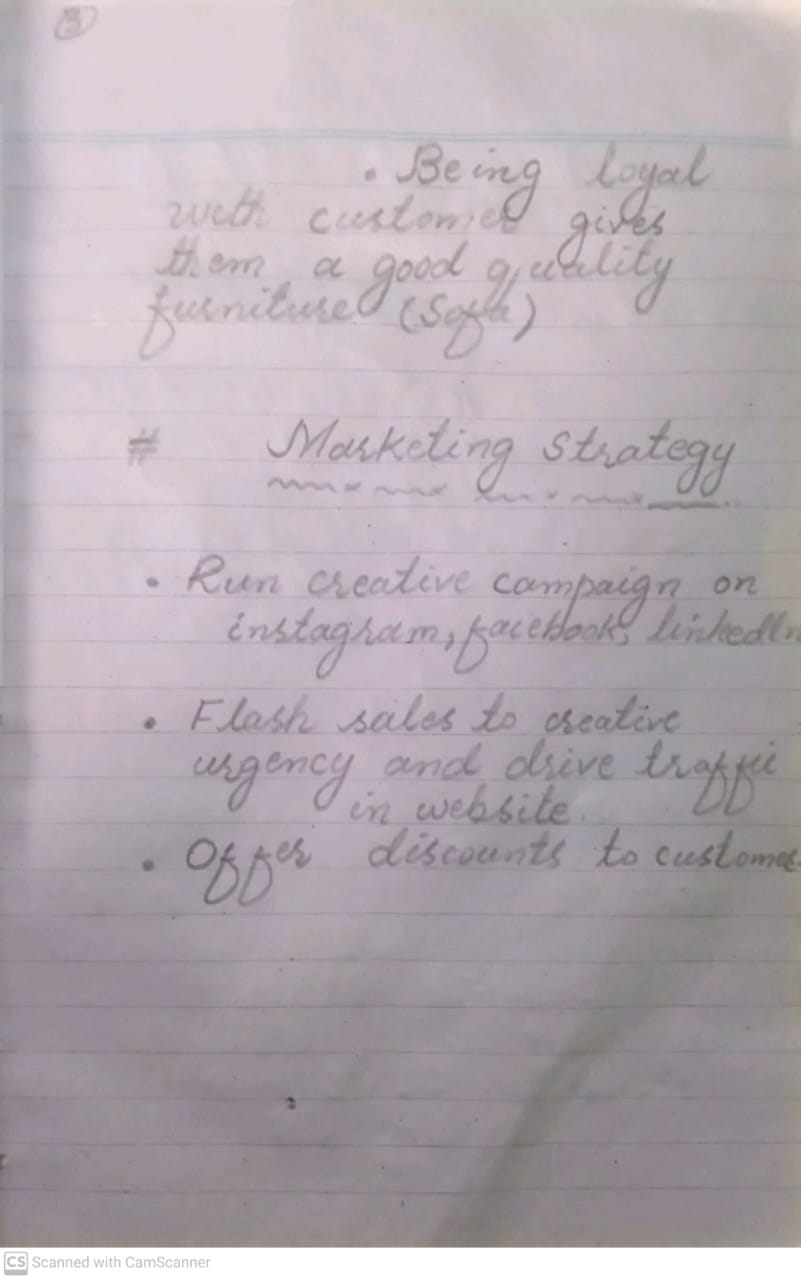 3
. Being loyal
with customer gives
them a good quality
furniture (Sofa)
# Marketing Strategy
. Run creative campaign on
instagram, facebook, linkedIn
. Flash sales to creative
urgency and drive traffic
in website.
. Offer discounts to customer.
CS Scanned with CamScanner